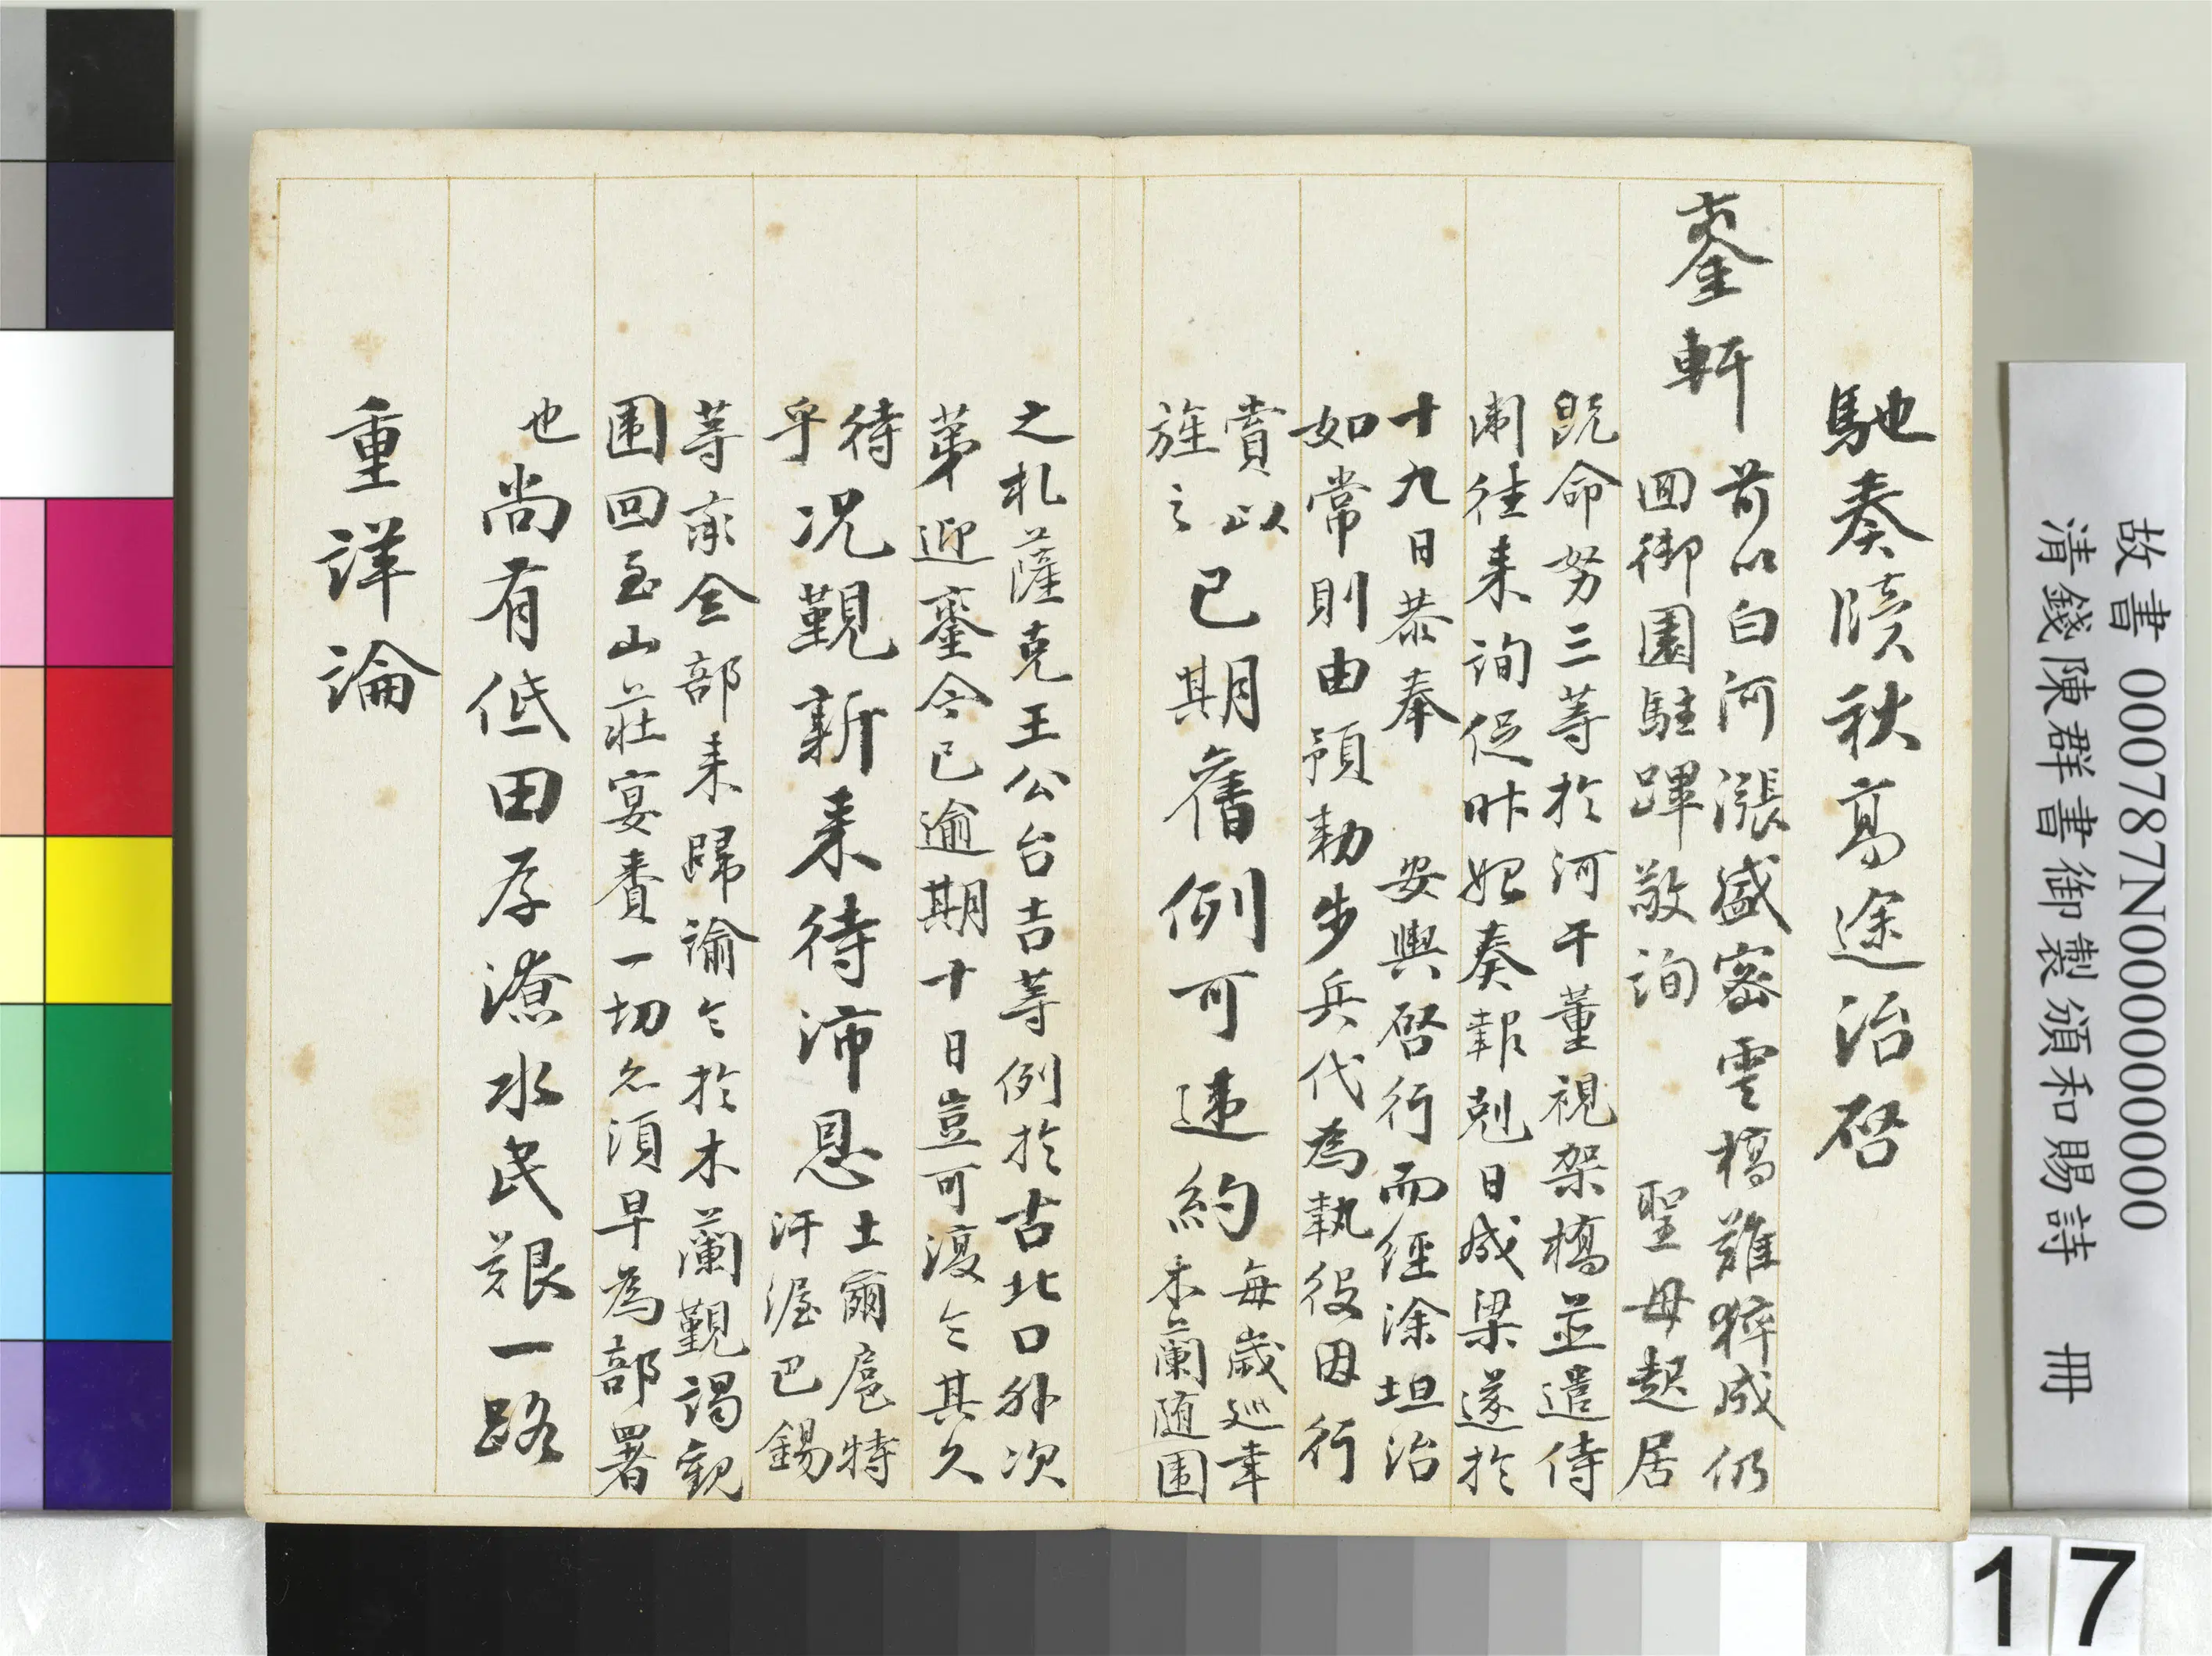 馳奏牘秋高途治啓
鑾軒
前以白河漲盛密雲橋難猝成仍
回御園駐蹕敬詢 聖母起居
既命努三等於河干董視架橋並遣侍
衛往來詢促昨始奏報剋日成梁遂於
十九日恭奉 安輿啓行而經涂坦治
如常則由預勅步兵代為執役因行
賞以
旌之
已期舊例可違約
每歲巡幸
木蘭随圍
之札薩克王公台吉等例於古北口外次
第迎鑾今已逾期十日豈可復令其久
待
乎
况覲新来待沛恩
土爾扈特
汗渥巴錫
等率全部来歸諭令於木蘭覲謁觀
圍回至山莊宴賚一切亦須早為部署
也
尚有低田存潦水民艱一路
重詳論
故書 000787N000000000
清錢陳群書御製頒和賜詩 冊
17